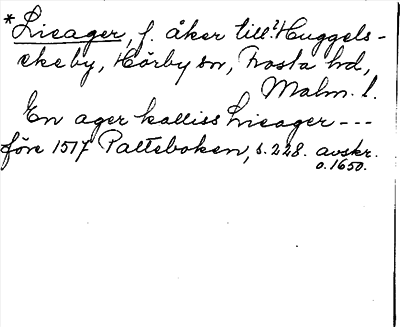 *Lieager, f. åker till? Huggels-
ekeby, Hörby sn, Frosta hd,
Malm. l.
En ager kalliss Lieager ---
före 1517 Palteboken, s. 228. avskr.
o. 1650.